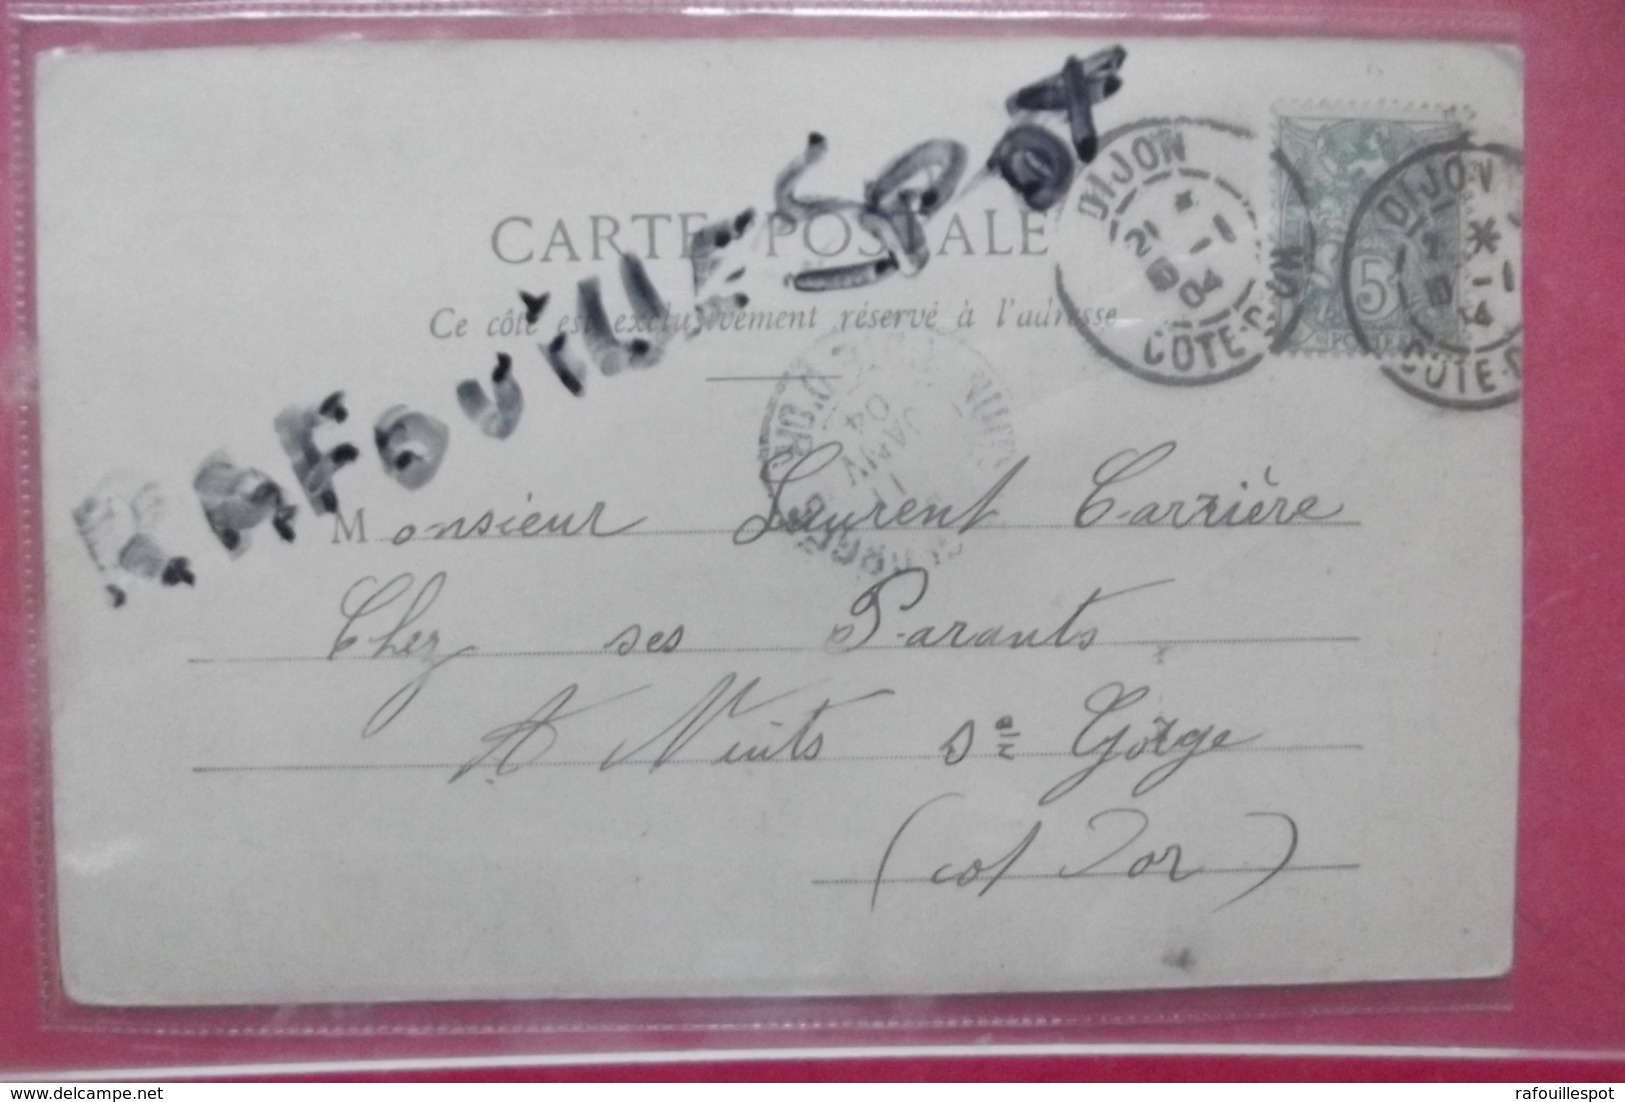 RAFOUILLESPOT
CARTE POSTALE
Ce côté est exclusivement réservé à l'adresse
DIJON
21 1 - 1
04
COTE-D'OR
DIJON
5
POSTES
COTE-D
NUITS
11
JANV
04
Monsieur Laurent Carrière
Chez ses Parants
A Nuits St Gorge
(cot Dor)
rafouillespot